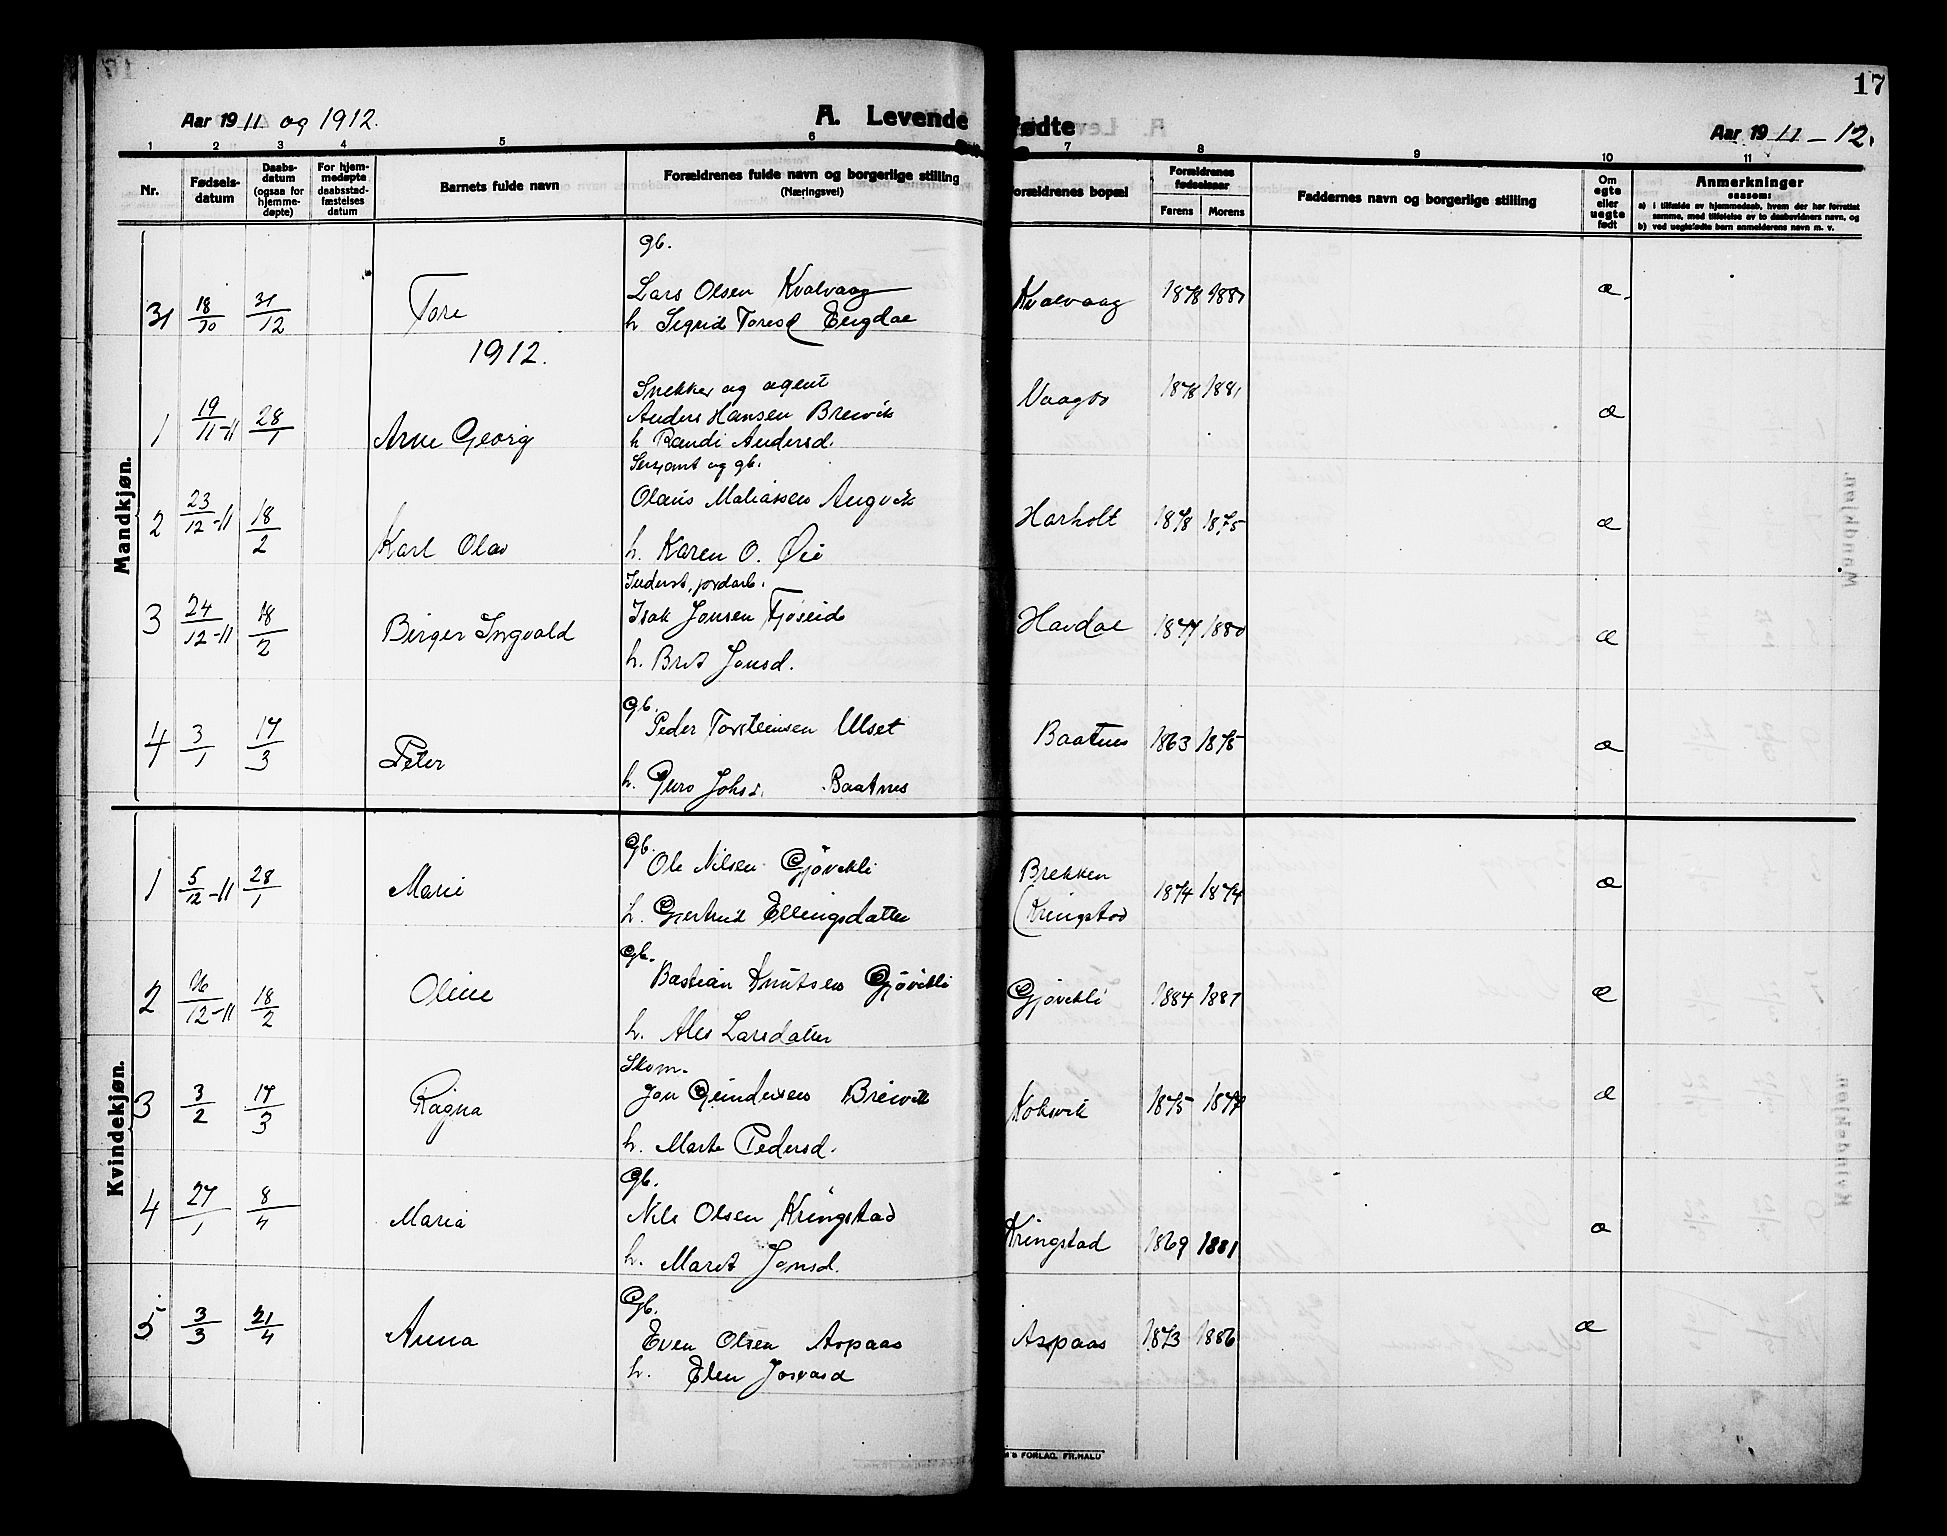 17
Aar 1911 og 1912.
A. Levende fødte
Aar 1911-12.
1 2 3 4 5 6 7 8 9 10 11
Nr.
Fødselsdatum
Daabsdatum (ogsaa for hjemmedøpte)
For hjemmedøpte daabsstadfæstelses datum
Barnets fulde navn
Forældrenes fulde navn og borgerlige stilling
(Næringsvei)
Forældrenes bopæl
Forældrenes fødselsaar
Farens Morens
Faddernes navn og borgerlige stilling
Om egte eller uegte født
Anmerkninger
saasom:
a) i tilfælde av hjemmedaab, hvem der har forrettet samme, med tilføielse av to daabsvidners navn, og
b) ved uegtefødte barn anmelderens navn m. v.
Mandkjøn.
gb.
31 18/10 31/12 Tore Lars Olsen Kvalvaag Kvalvaag 1878 1881 æ.
h Sigrid Toresd Engdal
1912.
Snekker og agent
1 19/11-11 28/1 Arne Georg Anders Hansen Breivik Vaagbø 1878 1881 æ
h Randi Andersd.
Sersjant og gb.
2 23/12-11 18/2 Karl Olav Olaus Matiassen Angvik Harholt 1878 1875 æ
h. Karen O. Øie
Inderst, jordarb.
3 24/12-11 18/2 Birger Ingvald Isak Jonsen Fjøseid Havdal 1877 1880 æ
h. Brit Jonsd.
gb.
4 3/1 17/3 Peter Peder Torsteinsen Ulset Baatnes 1863 1875 æ
h. Guro Johsd. Baatnes
Kvindekjøn.
Gb.
1 5/12-11 28/1 Marie Ole Nilsen Gjøvikli Brekken (Kringstad 1874 1874 æ
h. Gjertrud Ellingsdatter
Gb.
2 16/12-11 18/2 Oline Bastian Knutsen Gjøvikli Gjøvikli 1884 1887 æ
h. Ales Larsdatter
Skom.
3 3/2 17/3 Ragna Jon Gundersen Breivik Koksvik 1875 1877 æ
h. Marte Pedersd.
gb.
4 27/1 8/4 Maria Nils Olsen Kringstad Kringstad 1869 1881 æ
h. Marit Jonsd.
Gb.
5 3/3 21/4 Anna Even Olsen Aspaas Aspaas 1873 1886 æ
h. Elen
S FORLAG. FR.HALD